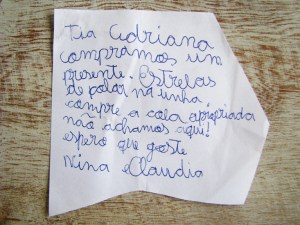 Tia Adriana
compramos um
presente. Estrelas
de polar na unha,
compre a cola apropriada
não achamos aqui!
espero que goste
Nina e Claudia